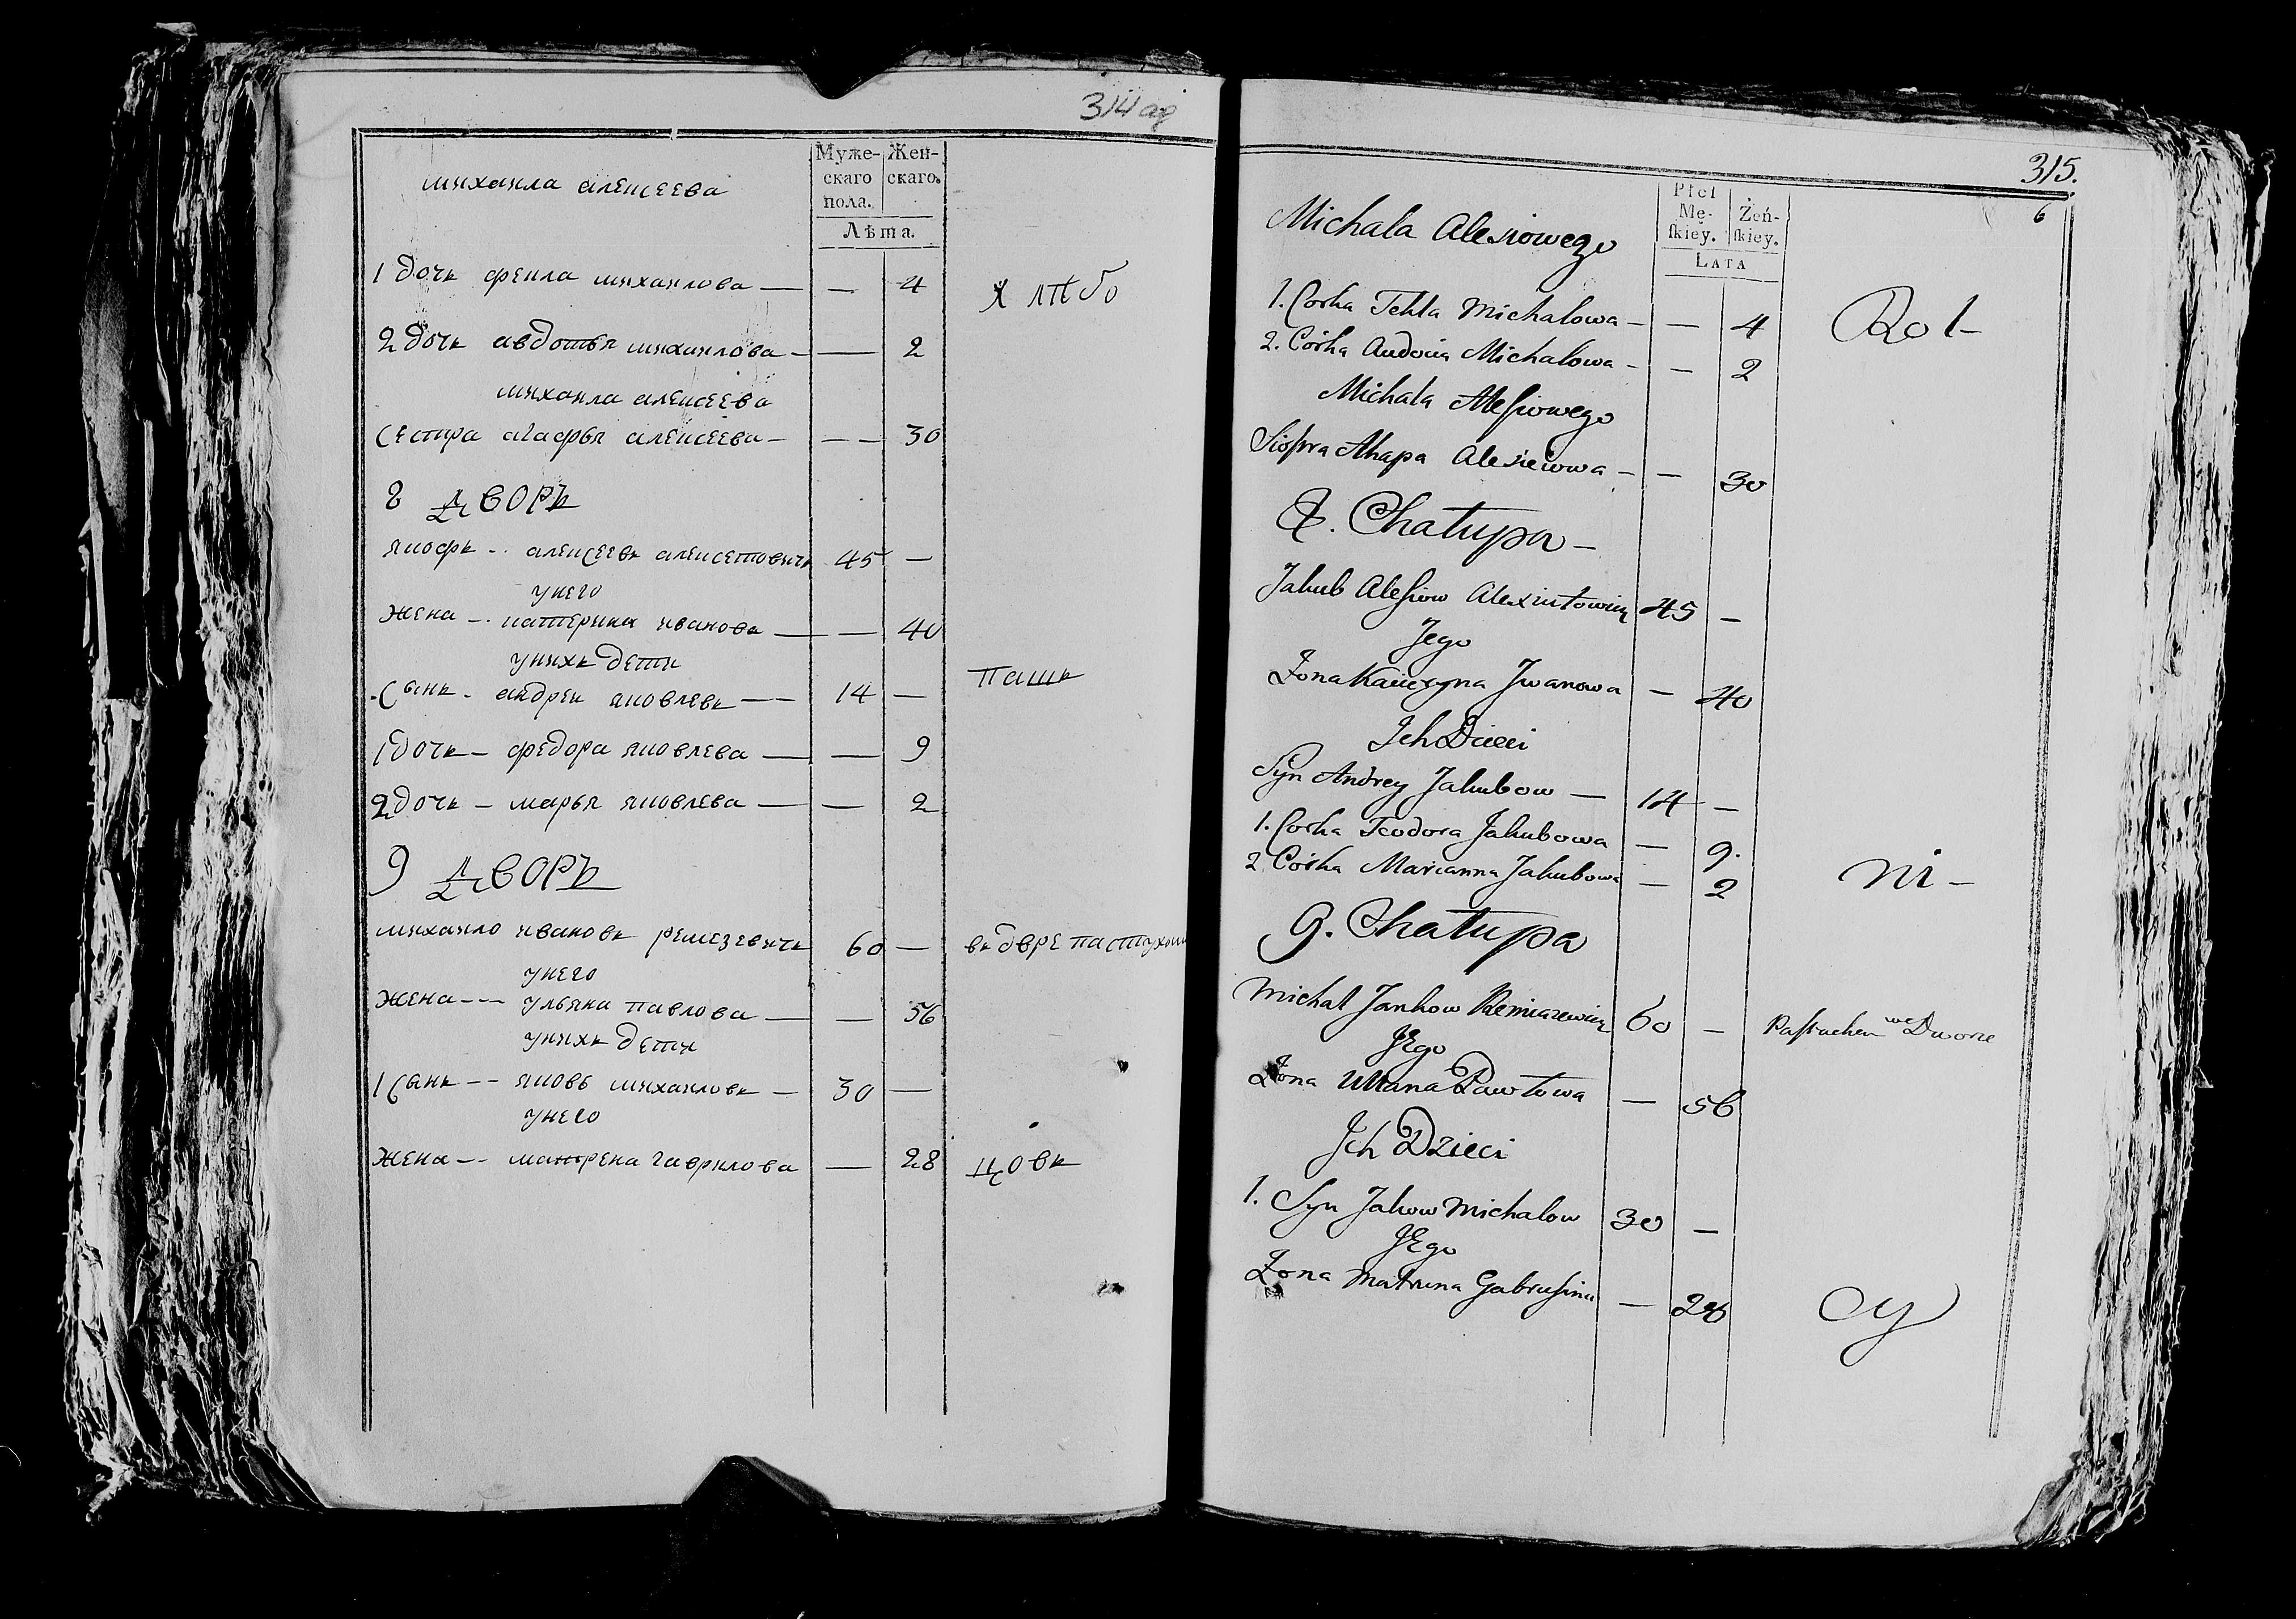 314 ад
Муже-
скаго
пола.
Жен-
скаго.
Лѣта.
михаила алексеева
1 дочь фекла михаилова — — 4
хлѣбо
2 дочь авдотья михаилова — — 2
михаила алексеева
сестра агафья алексеева — — 30
8 дворъ
якофъ алексеевъ алексетовичъ 45 —
унего
жена катерина иванова — — 40
унихъ дети
сынъ андреи яковлевъ — 14 —
пашъ
1 дочь федора яковлева — — 9
2 дочь марья яковлева — — 2
9 дворъ
михаило ивановъ ремезевичъ 60 — въ дворе пастухом
унего
жена ульяна павлова — — 56
унихъ дети
1 сынъ яковъ михаиловъ — 30 —
унего
жена матрена гаврилова — 28 цовъ
315.
6
Płci
Mę-
ſkiey.
Żeń-
ſkiey.
LATA
Michała Alesiowego
1. Corka Tekla Michałowa — — 4
Rol-
2. Córka Audocia Michałowa — — 2
Michała Aleſiowego
Siostra Ahapa Alesiewwa — — 30
8. Chałupa —
Jakub Aleſiow Alexintowicz 45 —
Jego
Żona Katerzyna Jwanowa — 40
Jch Dzieci
Syn Andrey Jakubow — 14 —
1. Corka Teodora Jakubowa — 9.
2 Córka Marianna Jakubowa — 2
ni —
9. Chałupa
Michał Jankow Remiazewicz 60 — Paſtuchem we Dworze
JEgo
Żona Uliana Pawłowa — 56
Jch Dzieci
1. Syn Jakow Michałow 30 —
JEgo
Żona Matruna Gabrusina — 28
cy